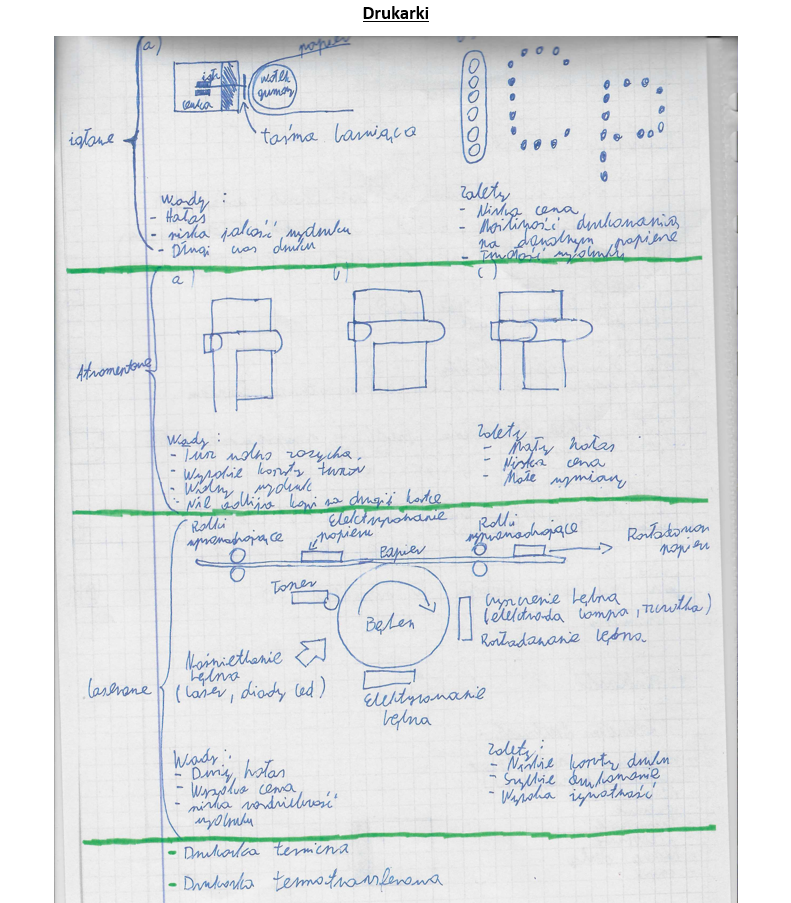 Drukarki
a)
papier
igła
wałek
gumowy
cewka
taśma barwiąca
igłowe
Wady :
- Hałas
- niska jakość wydruku
- Długi czas druku
Zalety
- Niska cena
- Możliwość drukowania
na dowolnym papierze
- Trwałość wydruku
a)
b)
c)
Atramentowe
Wady :
- Tusz wolno zasycha.
- Wysokie koszty tuszu
- Wolny wydruk
- Nie odbija kopi na drugiej kartce
Zalety
- Mały hałas
- Niska cena
- Małe wymiary
Rolki
wprowadzające
Elektryzowanie
papieru
Papier
Rolki
wyprowadzające
Rozładowan
papieru
Toner
Bęben
czyszczenie bębna
(elektroda lampa, szczotka)
Rozładowanie bębna
Naświetlanie
bębna
(laser, diody led)
Elektryzowanie
bębna
laserowe
Wady :
- Duży hałas
- Wysoka cena
- niska rozdzielczość
wydruku
Zalety :
- Niskie koszty druku
- Szybkie drukowanie
- Wysoka żywotność
- Drukarka termiczna
- Drukarka termotransferowa